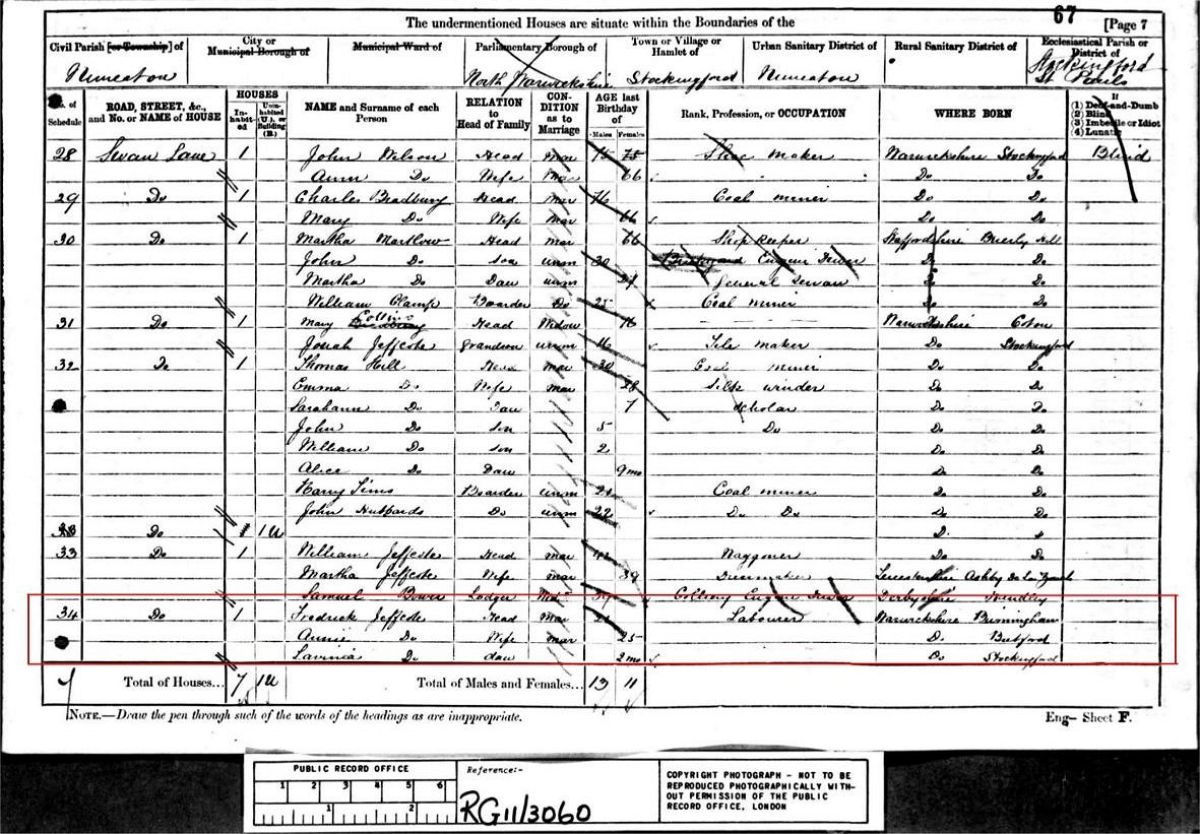 67
The undermentioned Houses are situate within the Boundaries of the [Page 7
Civil Parish [or Township] of City or Municipal Borough of Municipal Ward of Parliamentary Borough of Town or Village or Hamlet of Urban Sanitary District of Rural Sanitary District of Ecclesiastical Parish or District of
Nuneaton North Warwickshire Stockingford Nuneaton Stockingford St Pauls
No. of Schedule ROAD, STREET, &c., and No. or NAME of HOUSE HOUSES Inhabited Uninhabited (U.), or Building (B.) NAME and Surname of each Person RELATION to Head of Family CONDITION as to Marriage AGE last Birthday of Males Females Rank, Profession, or OCCUPATION WHERE BORN If (1) Deaf-and-Dumb (2) Blind (3) Imbecile or Idiot (4) Lunatic
28 Lane 1 John Wilson Head mar 75 Shoe maker Warwickshire Stockingford Blind
Ann Do Wife Mar 66 Do Do
29 Do 1 Charles Bradbury Head mar 76 Coal miner Do Do
Mary Do Wife mar 66 Do Do
30 Do 1 Martha Martlow Head mar 66 Shop keeper Staffordshire Hill
John Do son unm 30 Engine Do Do
Martha Do Dau unm General Do Do
William Clamp Boarder Do 25 Coal miner Do Do
31 Do 1 Mary Collins Head Widow 76 Warwickshire Coton
Josiah Jeffcote Grandson unm 16 Tile maker Do Stockingford
32 Do 1 Thomas Hill Head mar 30 Coal miner Do Do
Emma Do Wife mar 28 Silk winder Do Do
Sarahann Do Dau 7 Scholar Do Do
John Do son 5 Do Do Do
William Do son 2 Do Do
Alice Do Dau 9mo Do Do
Harry Sims Boarder unm 21 Coal miner Do Do
John Hubbards Do unm 22 Do Do Do Do
Do 1U
33 Do 1 William Jeffcote Head mar Waggoner Do Do
Martha Jeffcote Wife mar 39 Leicestershire Ashby de la Zouch
Samuel Lodger Colliery Engine Derbyshire
34 Do 1 Fredrick Jeffcote Head Mar Labourer Warwickshire Birmingham
Annie Do Wife mar 25 Do
Lavinia Do dau 2mo Do Stockingford
7 Total of Houses... 7 1U Total of Males and Females... 13 11
NOTE.—Draw the pen through such of the words of the headings as are inappropriate. Eng— Sheet F.
PUBLIC RECORD OFFICE
1 2 3 4 5 6
1 2
Reference:-
RG11/3060
COPYRIGHT PHOTOGRAPH - NOT TO BE
REPRODUCED PHOTOGRAPHICALLY WITH-
OUT PERMISSION OF THE PUBLIC
RECORD OFFICE, LONDON